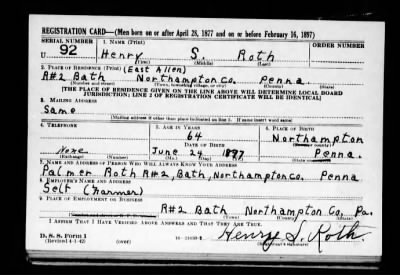 REGISTRATION CARD—(Men born on or after April 28, 1877 and on or before February 16, 1897)
SERIAL NUMBER
1. NAME (Print)
ORDER NUMBER
U 92
Henry S. Roth
(First) (Middle) (Last)
2. PLACE OF RESIDENCE (Print) (East Allen)
R#2 Bath Northampton Co. Penna.
(Number and street) (Town, township, village, or city) (County) (State)
[THE PLACE OF RESIDENCE GIVEN ON THE LINE ABOVE WILL DETERMINE LOCAL BOARD
JURISDICTION; LINE 2 OF REGISTRATION CERTIFICATE WILL BE IDENTICAL]
3. MAILING ADDRESS
Same
[Mailing address if other than place indicated on line 2. If same insert word same]
4. TELEPHONE
5. AGE IN YEARS
6. PLACE OF BIRTH
64
Northampton
DATE OF BIRTH
None
June 24 1877
Penna.
(Exchange) (Number) (Mo.) (Day) (Yr.)
7. NAME AND ADDRESS OF PERSON WHO WILL ALWAYS KNOW YOUR ADDRESS
Palmer Roth R#2, Bath, Northampton Co. Penna
8. EMPLOYER'S NAME AND ADDRESS
Self (Farmer)
9. PLACE OF EMPLOYMENT OR BUSINESS
R#2 Bath Northampton Co, Pa.
(Town) (County) (State)
I AFFIRM THAT I HAVE VERIFIED ABOVE ANSWERS AND THAT THEY ARE TRUE.
D. S. S. Form 1
(Revised 4-1-42) (over)
Henry S. Roth